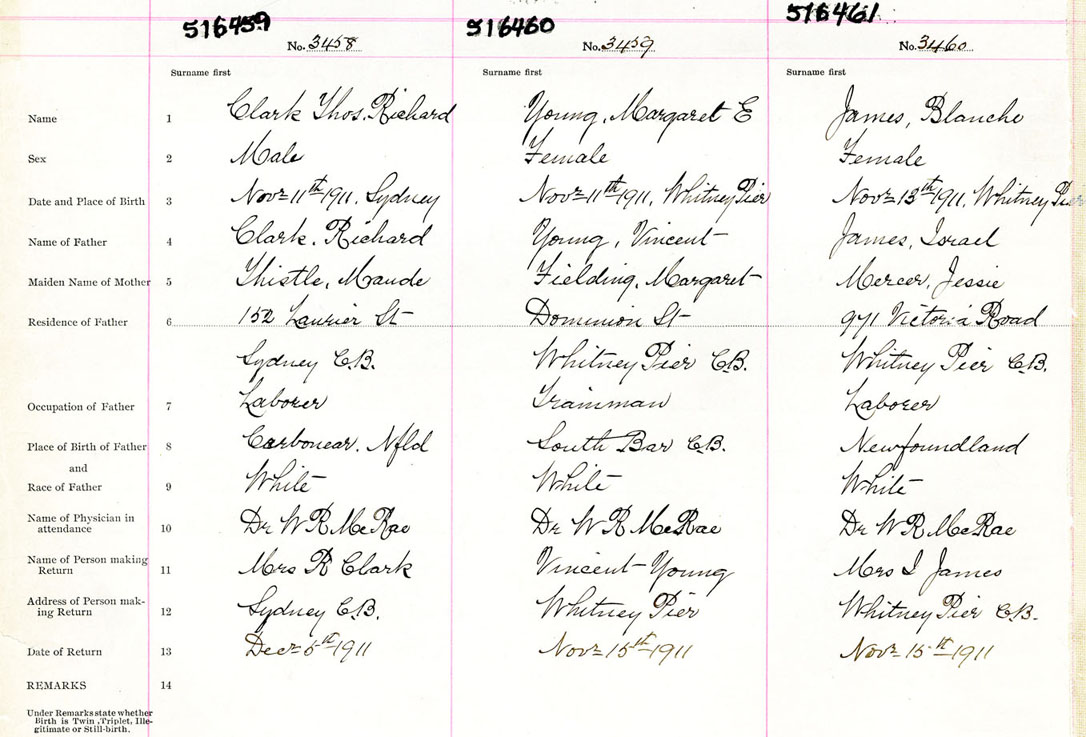 516459 516460 516461
No. 3458 No. 3459 No. 3460
Surname first Surname first Surname first
Name 1 Clark Thos. Richard Young, Margaret E James, Blanche
Sex 2 Male Female Female
Date and Place of Birth 3 Novr 11th 1911, Sydney Novr 11th 1911, Whitney Pier Novr 13th 1911, Whitney Pier
Name of Father 4 Clark, Richard Young, Vincent James, Israel
Maiden Name of Mother 5 Thistle, Maude Fielding, Margaret Mercer, Jessie
Residence of Father 6 152 Laurier St Dominion St 971 Victoria Road
Sydney C.B. Whitney Pier C.B. Whitney Pier C.B.
Occupation of Father 7 Laborer Trainman Laborer
Place of Birth of Father 8 Carbonear, Nfld South Bar C.B. Newfoundland
and
Race of Father 9 White White White
Name of Physician in
attendance 10 Dr W R McRae Dr W R McRae Dr W R McRae
Name of Person making
Return 11 Mrs R Clark Vincent Young Mrs I James
Address of Person mak-
ing Return 12 Sydney C.B. Whitney Pier Whitney Pier C.B.
Date of Return 13 Decr 5th 1911 Novr 15th 1911 Novr 15th 1911
REMARKS 14
Under Remarks state whether
Birth is Twin, Triplet, Ille-
gitimate or Still-birth.